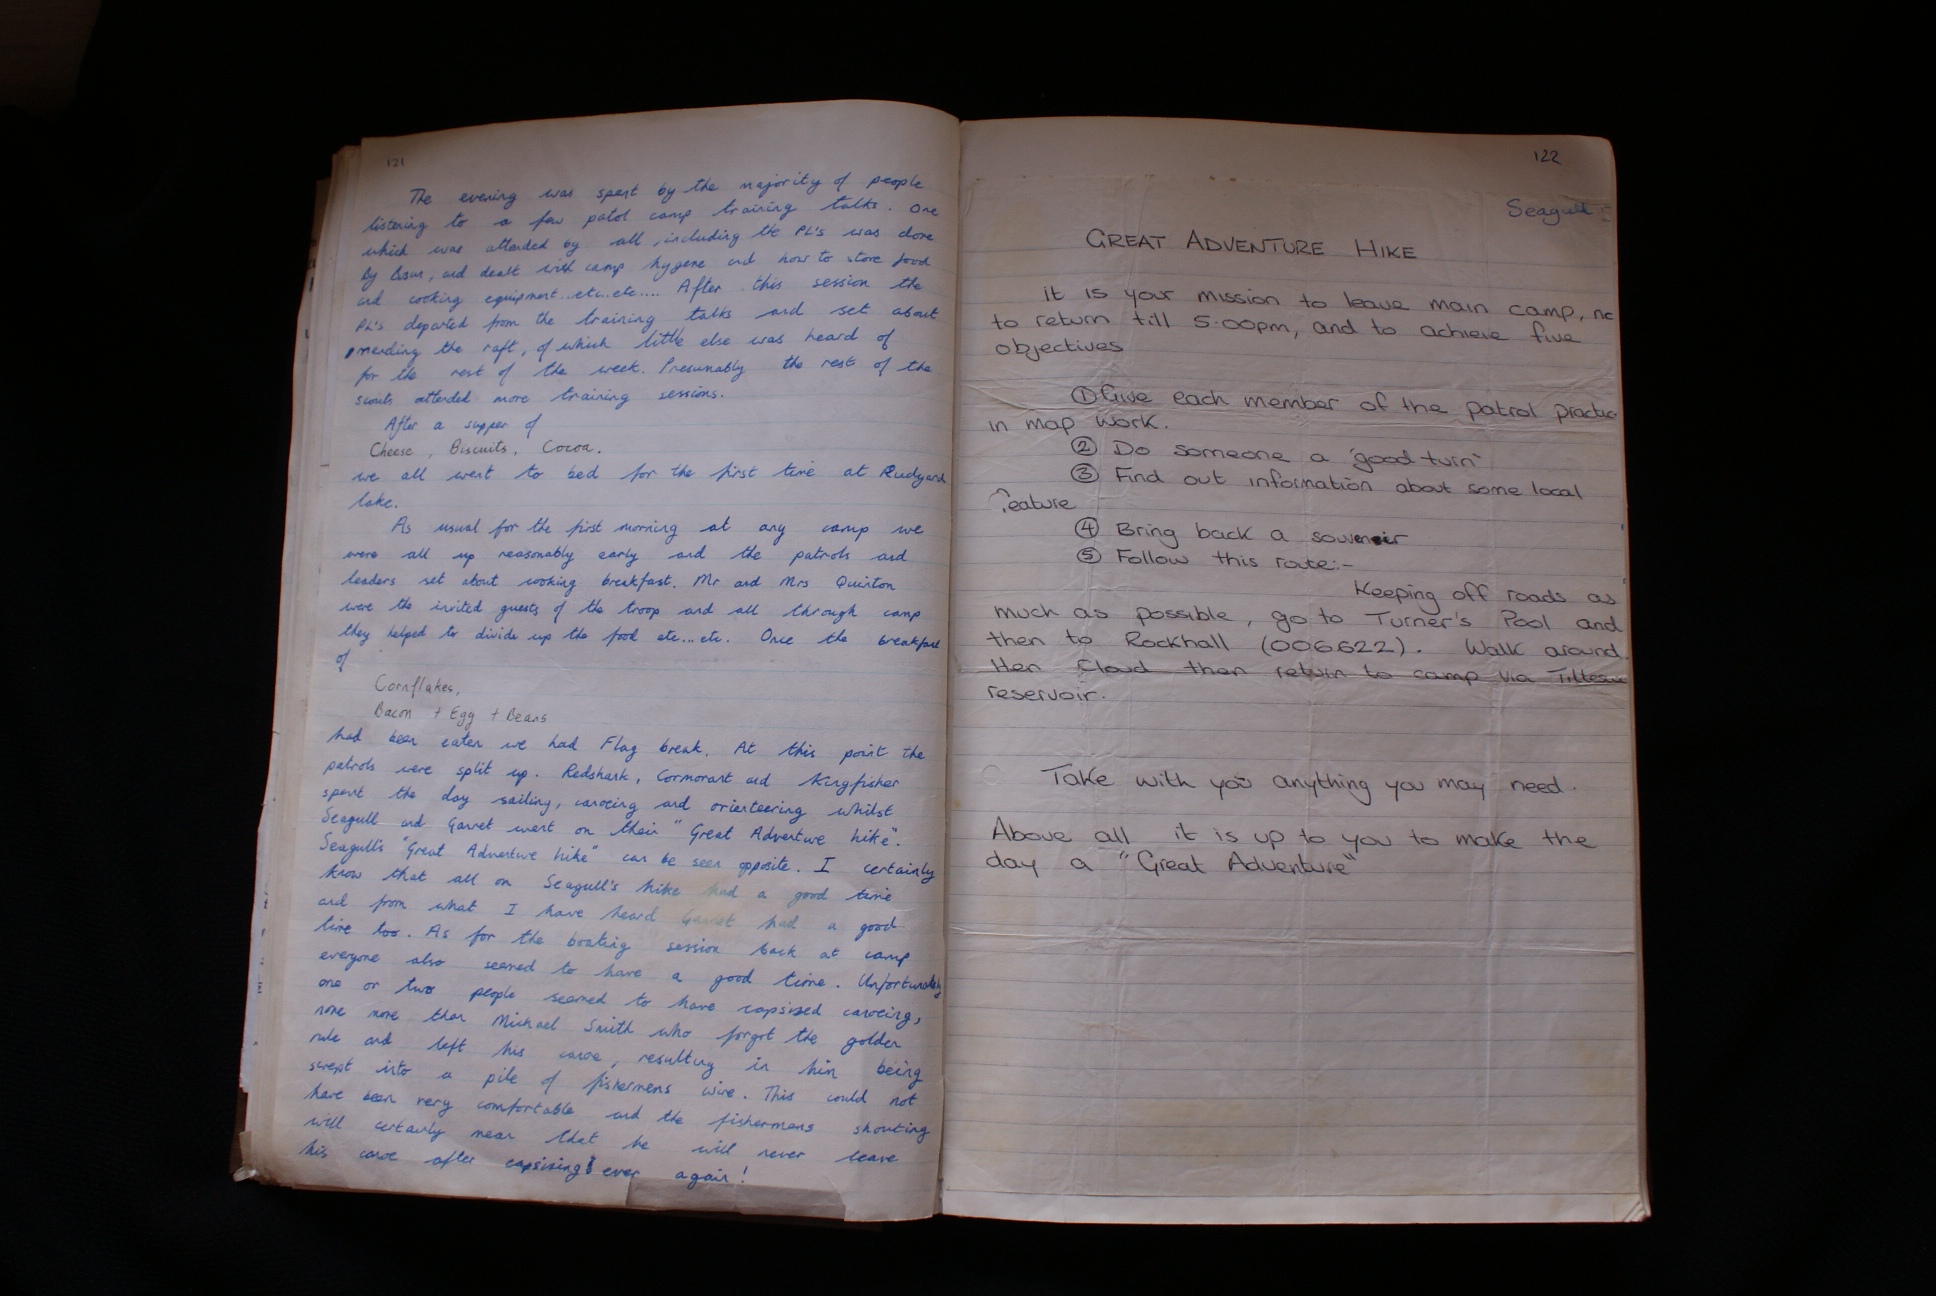 121
The evening was spent by the majority of people
listening to a few patol camp training talks. One
which was attended by all, including the PL's was done
by , and dealt with camp hygene and how to store food
and cooking equipment..etc..etc.... After this session the
PL's departed from the training talks and set about
mending the raft, of which little else was heard of
for the rest of the week. Presumably the rest of the
scouts attended more training sessions.
After a supper of
Cheese, Biscuits, Cocoa.
we all went to bed for the first time at Rudyard
lake.
As usual for the first morning at any camp we
were all up reasonably early and the patrols and
leaders set about cooking breakfast. Mr and Mrs Quinton
were the invited guests of the troop and all through camp
they helped to divide up the food etc...etc. Once the breakfast
of
Cornflakes,
Bacon + Egg + Beans
had been eaten we had Flag break. At this point the
patrols were split up. Redshark, Cormorant and Kingfisher
spent the day sailing, canoeing and orienteering whilst
Seagull and Gannet went on their "Great Adventure hike".
Seagull's "Great Adventure hike" can be seen opposite. I certainly
know that all on Seagull's hike had a good time
and from what I have heard Gannet had a good
time too. As for the boating session back at camp
everyone also seemed to have a good time. Unfortunately
one or two people seemed to have capsized canoeing,
none more than Michael Smith who forgot the golden
rule and left his canoe, resulting in him being
swept into a pile of fishermens wire. This could not
have been very comfortable and the fishermans shouting
will certainly mean that he will never leave
his canoe after capsizing ever again!
122
Seagull
GREAT ADVENTURE HIKE
it is your mission to leave main camp,
to return till 5.00pm, and to achieve five
objectives
① Give each member of the patrol practice
in map work.
② Do someone a 'good turn'
③ Find out information about some local
feature
④ Bring back a souvenir
⑤ Follow this route:-
Keeping off roads as
much as possible, go to Turner's Pool and
then to Rockhall (006622). Walk around
Hen Cloud then return to camp via Tittesw
reservoir.
Take with you anything you may need.
Above all it is up to you to make the
day a "Great Adventure"